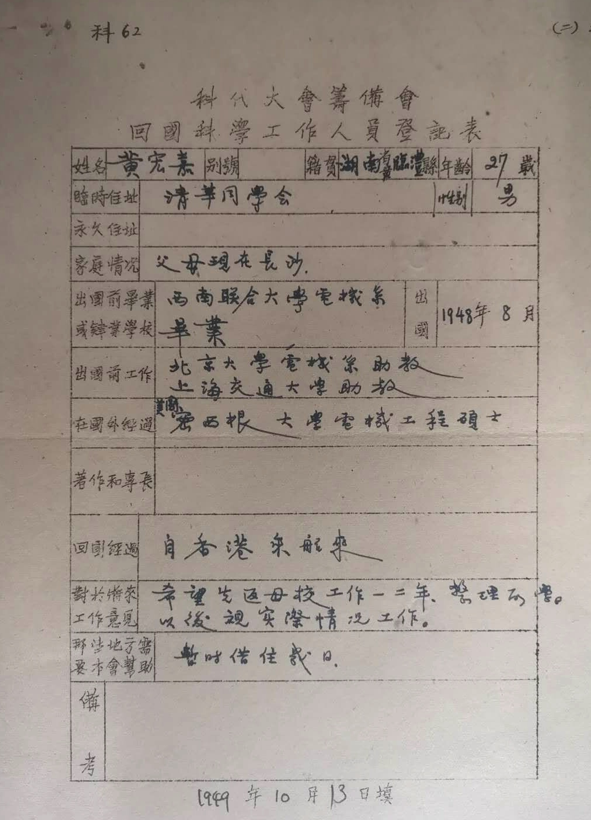 科62
(二)
科代大會籌備會
回國科學工作人員登記表
姓名 黄宏嘉 别號 籍貫 湖南省臨澧縣 年齡 27歲
臨時住址 清華同學会 性别 男
永久住址
家庭情况 父母現在長沙.
出國前畢業或肄業學校 西南联合大學電機系畢業 出國 1948年8月
出國前工作 北京大學電機系助教
上海交通大學助教
在國外經過 美國密西根大學電機工程碩士
著作和專長
回國經過 自香港乘船來
對於將來工作意見 希望先返母校工作一二年、整理所學。
以後視實際情况工作。
那些地方需要本會幫助 暫时借住幾日.
備考
1949年10月13日填